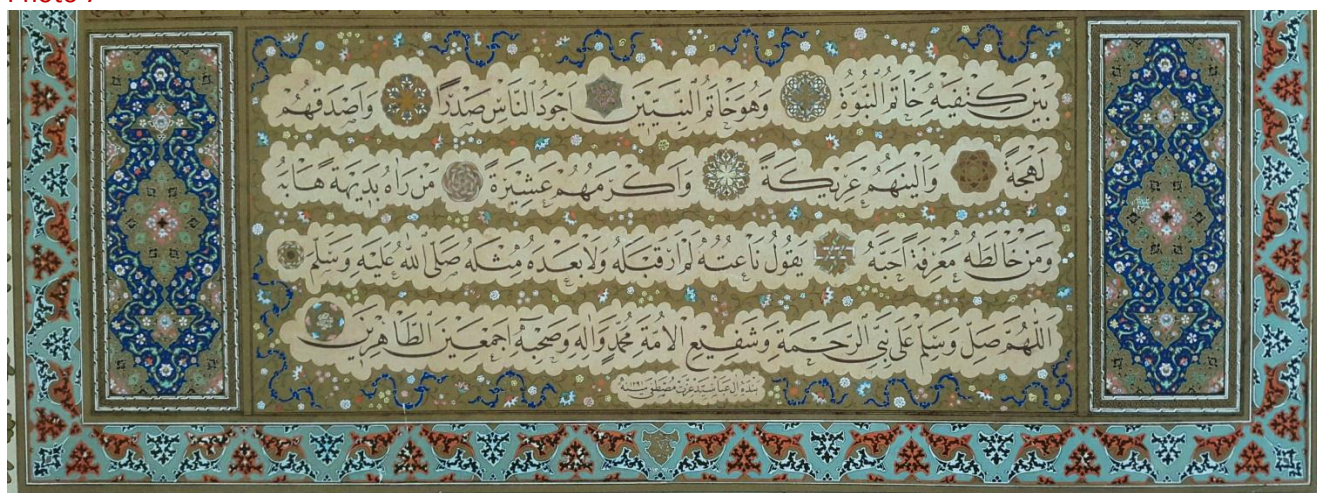 Photo 7
بَيْنَ كَتِفَيْهِ خَاتَمُ النُّبُوَّةُ وَهُوَ خَاتَمُ النَّبِيّينَ اَجْوَدُ النَّاسِ صَدْرًا وَاَصْدَقُهُمْ
لَهْجَةً وَاَلْيَنُهُمْ عَرِيكَةً وَاَكْرَمُهُمْ عَشِيرَةً مَنْ رَاٰهُ بَدِيهَةً هَابَهُ
وَمَنْ خَالَطَهُ مَعْرِفَةً اَحَبَّهُ يَقُولُ نَاعِتُهُ لَمْ اَرَ قَبْلَهُ وَلَا بَعْدَهُ مِثْلَهُ صَلَّى اللهُ عَلَيْهِ وَسَلَّمَ
اَللّٰهُمَّ صَلِّ وَسَلِّمْ عَلٰى نَبِيِّ الرَّحْمَةِ وَشَفِيعِ الْاُمَّةِ مُحَمَّدٍ وَاٰلِهِ وَصَحْبِهِ اَجْمَعِينَ الطَّاهِرِينَ
بنده آل عبا سيد عزت مصطفى سنه